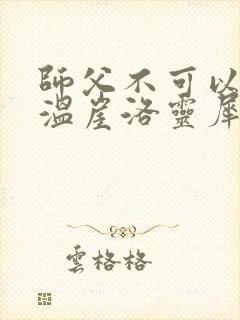 師父不可以
溫崖洛靈犀
雲格格